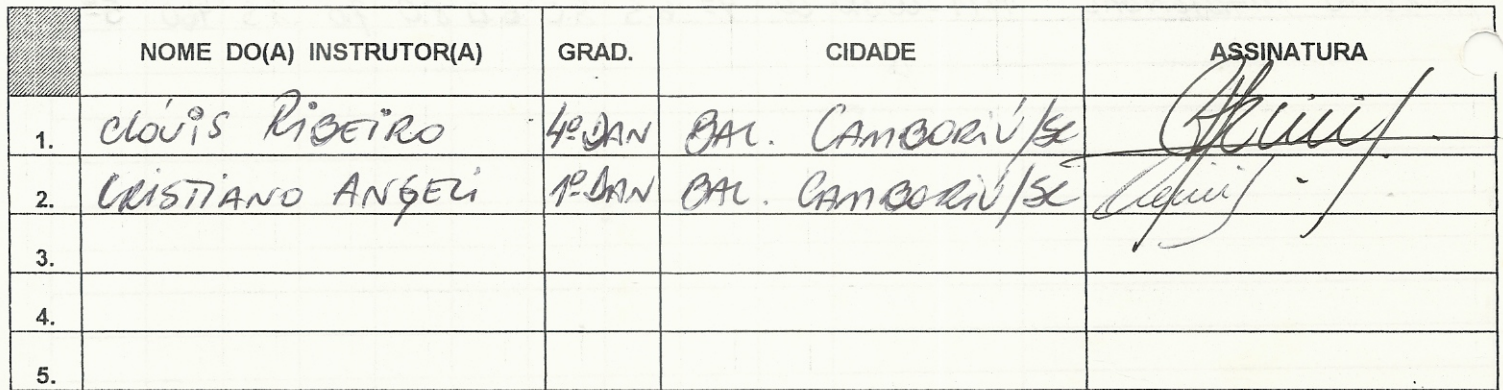 NOME DO(A) INSTRUTOR(A) GRAD. CIDADE ASSINATURA
1. Clóvis Ribeiro 4º DAN BAL. CAMBORIÚ/SC
2. CRISTIANO ANGELI 1º DAN BAL. CAMBORIÚ/SC
3.
4.
5.